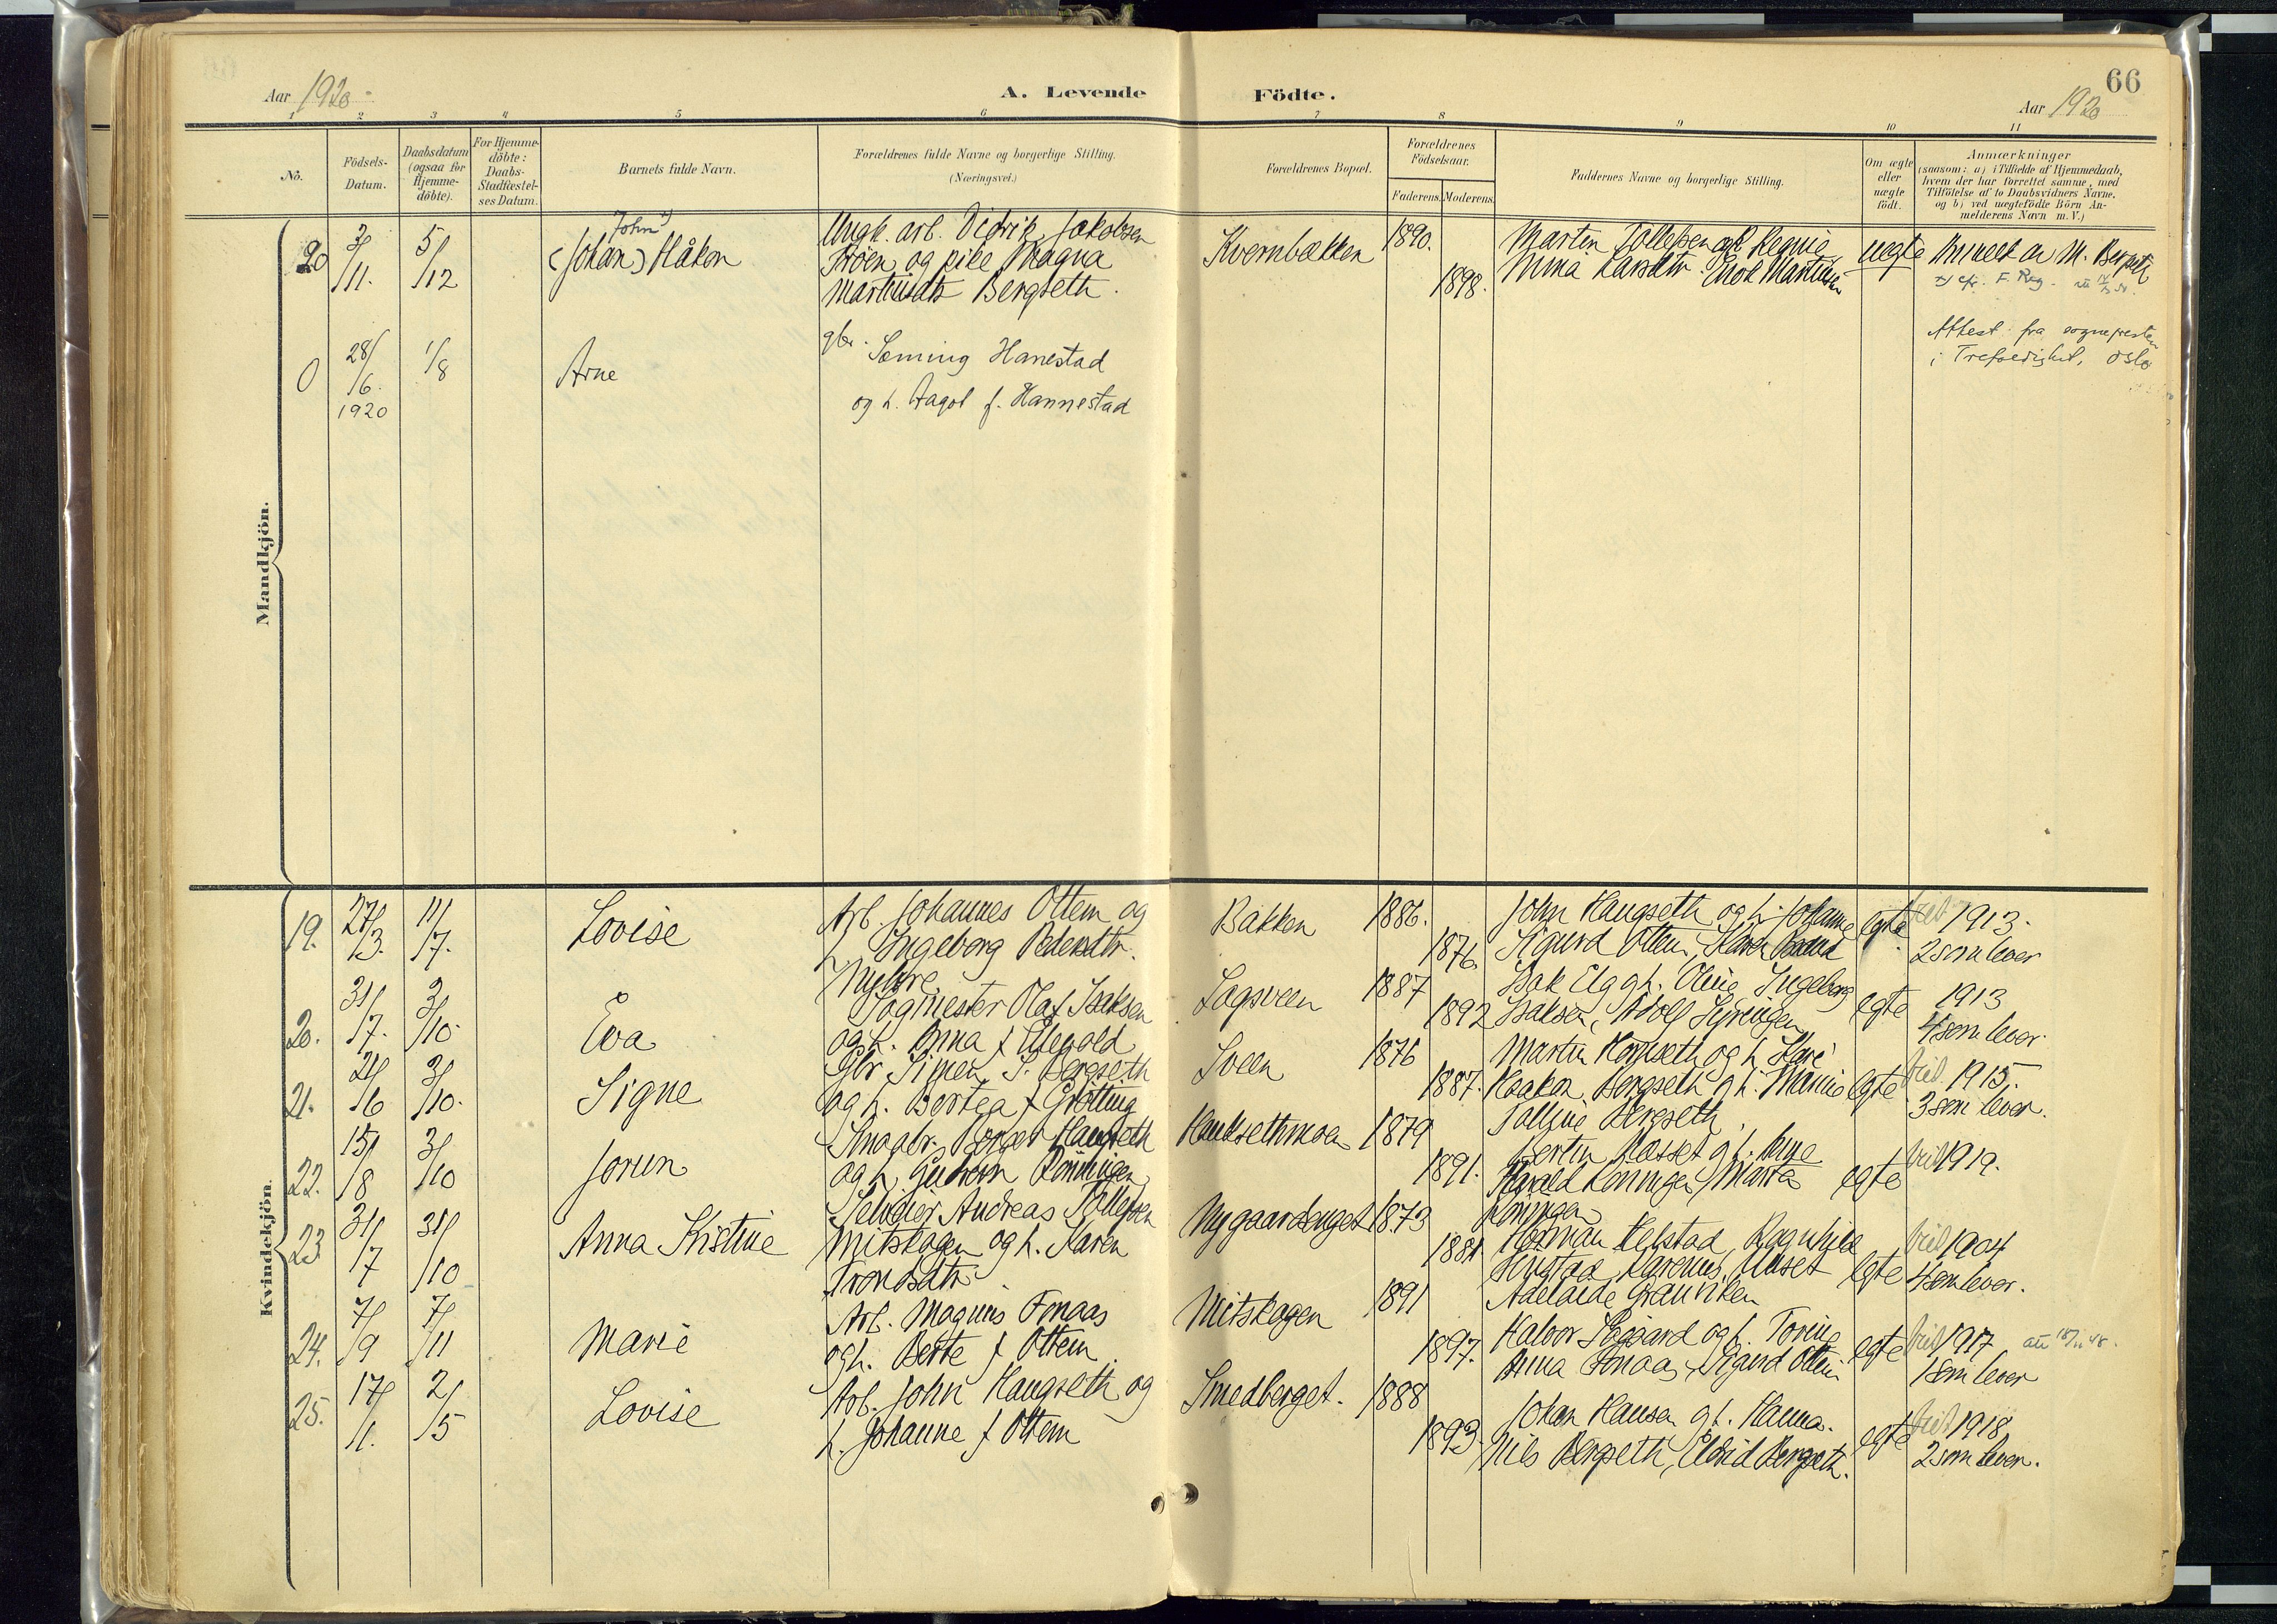 66
Aar 1920
A. Levende
Födte.
Aar 1920
1 2 3 4 5 6 7 8 9 10 11
No.
Födsels-
Datum.
Daabsdatum
(ogsaa for
Hjemme-
döbte).
For Hjemme-
döbte:
Daabs-
Stadfæstel-
ses Datum.
Barnets fulde Navn.
Forældrenes fulde Navne og borgerlige Stilling.
(Næringsvei.)
Forældrenes Bopæl.
Forældrenes
Födselsaar.
Faderens.
Moderens.
Faddernes Navne og borgerlige Stilling.
Om ægte
eller
uægte
födt.
Anmærkninger
(saasom: a) i Tilfælde af Hjemmedaab,
hvem der har forrettet samme, med
Tilföielse af to Daabsvidners Navne.
og b) ved uægtefödte Börn An-
melderens Navn m. V.)
Mandkjön.
20 3/11. 5/12
John
(Johan) Håkon
Ungk. arb. Didrik Jakobsen
Moen og pike Magna
Martinsdtr Bergseth.
Kvernbækken 1890.
1898.
Martin Tollefsen
Larsdtr
uegte
0 28/6. 1/8
1920
Arne
gbr. Seming Hanestad
og h. Aagot f. Hannestad
Attest fra sognepresten
i Trefoldighet, Oslo
Kvindekjön.
19. 27/3. 11/7.
Lovise
Arb. Johannes Ottem og
h. Ingeborg Pedersdtr.
Bakken 1886.
1876.
John Haugseth og h. Johanne
Sigurd Ottem,
egte 1913.
2 som lever
20. 31/7. 3/10.
Eva
Sagmester Olaf Isaksen
og h. Anna f
Sagsveen 1887
1892
Isak Elg og h. Oline Ingeborg
Isaksen, Adolf
egte 1913
4 som lever.
21. 24/6 3/10.
Signe
Gbr. Simen S. Bergseth
og h. Bertea f Grötting
Sveen 1876
1887.
Martin
Haakon Bergseth og h.
Bergseth
egte 1915.
3 som lever.
22. 15/8 3/10
Jorun
Haugseth
og h. Gudrun Rönningen
Hauksethmoen 1879
1891.
Harald Rönningen, Marta
Rönningen
egte 1919.
23 31/7 31/10
Anna Kristine
Selveier Andreas Tollefsen
Mitskogen og h. Karen
Trondsdtr.
Nygaardsenget 1873
1881
Herman Helstad, Ragnhild
Adelaide
egte 1904
4 som lever.
24. 7/9 7/11
Marie
Arb. Magnus Fonaas
og h. Berte f Ottem
Mitskogen 1891
1897.
Halvor og h. Torine
Anna Fonaas, Sigurd Ottem
egte 1917
1 som lever
25. 17/1. 2/5
Lovise
Arb. John Haugseth og
h. Johanne f Ottem
Smedberget. 1888
1893
Johan Hansen og h. Hanna.
Nils Bergseth, Eldrid Bergseth.
egte 1918
2 som lever.